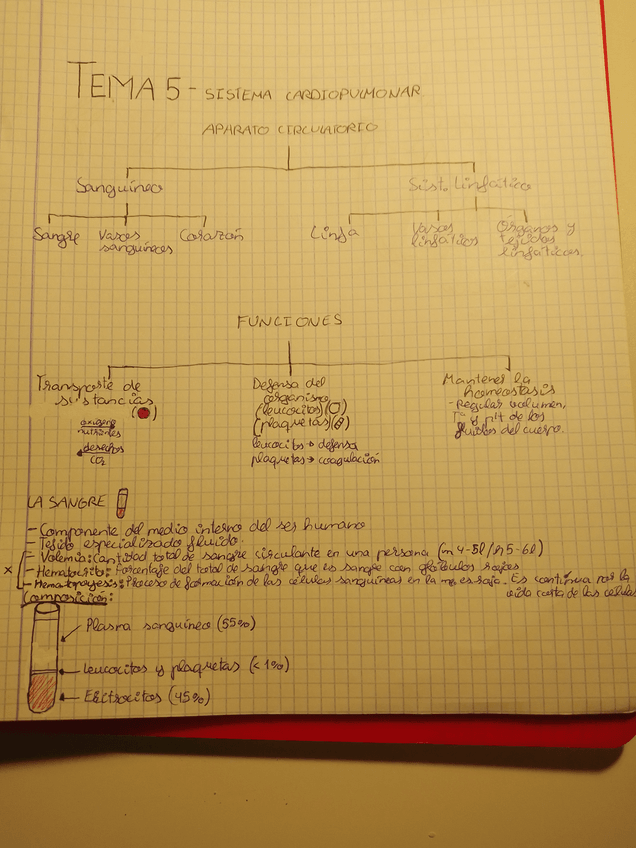 TEMA 5 - SISTEMA CARDIOPULMONAR
APARATO CIRCULATORIO
Sanguíneo
Sist. Linfático
Sangre
Vasos sanguíneos
Corazón
Linfa
Vasos linfáticos
Órganos y tejidos linfáticos.
FUNCIONES
Transporte de
sustancias
oxígeno
nutrientes
desechos
CO₂
Defensa del
organismo
(leucocitos)
(plaquetas)
leucocitos → defensa
plaquetas → coagulación
Mantener la
homeostasis
- Regular volumen,
Tª y pH de los
fluidos del cuerpo.
LA SANGRE
- Componente del medio interno del ser humano
- Tejido especializado fluido.
- Volemia: Cantidad total de sangre circulante en una persona (m 4-5l / h 5-6l)
x - Hematocrito: Porcentaje del total de sangre que es sangre con glóbulos rojos
- Hematopoyesis: Proceso de formación de las células sanguíneas en la m. es roja. Es continua por la
vida corta de las células
Composición:
Plasma sanguíneo (55%)
Leucocitos y plaquetas (<1%)
Eritrocitos (45%)